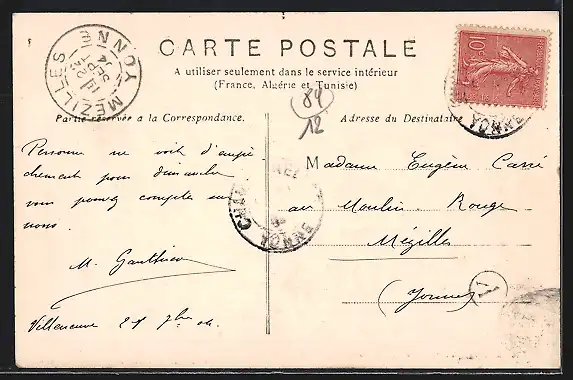 CARTE POSTALE
A utiliser seulement dans le service intérieur
(France, Algérie et Tunisie)
Partie réservée a la Correspondance.
Adresse du Destinataire
84
12
MEZILLES
YONNE
10
YONNE
Personne ne voit d'empê
chement pour dimanche
vous pouvez compter sur
nous.
M. Gauthier
Villeneuve 21 7bre 04.
Madame Eugène Carré
au Moulin Rouge
Mézilles
(Yonne)
YONNE